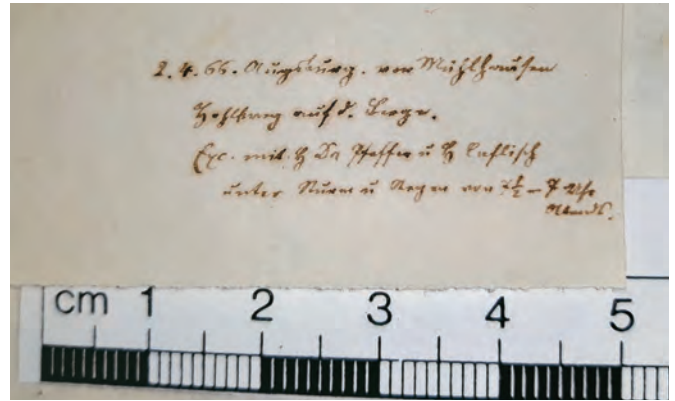 2. 4. 66. Augsburg. von Mühlhausen
Hohlweg auf d. Berge.
Exc. mit H Dr Pfeffer u H Caflisch
unter Sturm u Regen von 2½ – 7 Uhr
Abends.
cm 1 2 3 4 5